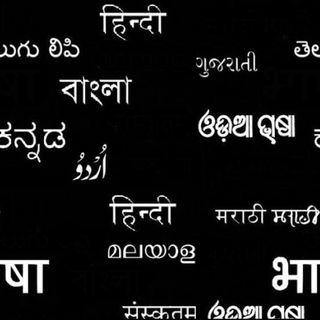 हिन्दी
లుగు లిపి
ગુજરાતી
తె
বাংলা
ಕನ್ನಡ
ଓଡ଼ିଆ ଭାଷା
اُردُو
हिन्दी
मराठी
മലയാള
षा
भा
संस्कृतम्
ଓଡ଼ିଆ ଭାଷା